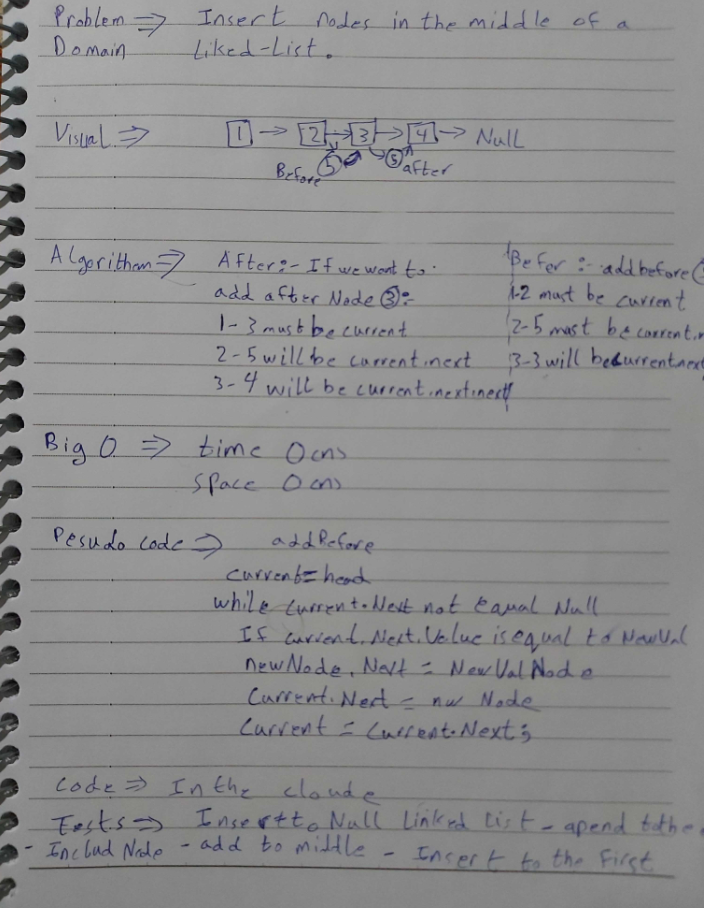 Problem ⇒ Insert nodes in the middle of a
Domain Liked-List.
Visual ⇒ 1 → 2 → 3 → 4 → Null
Before 5 5 after
Algorithem ⇒ After:- If we want to
add after Node ③:-
1- 3 must be current
2-5 will be current.next
3- 4 will be current.next.next
Befer :- add before
1-2 must be current
2-5 must be current.n
3-3 will be current.next
Big O ⇒ time O(n)
space O(n)
Pesudo code ⇒ addBefore
current = head
while current.Next not equal Null
If current.Next.Value is equal to NewVal
newNode.Next = NewValNode
Current.Next = nw Node
Current = Current.Next;
Code ⇒ In the cloude
Tests ⇒ Insert to Null Linked List - apend to the
- Includ Node - add to middle - Insert to the First